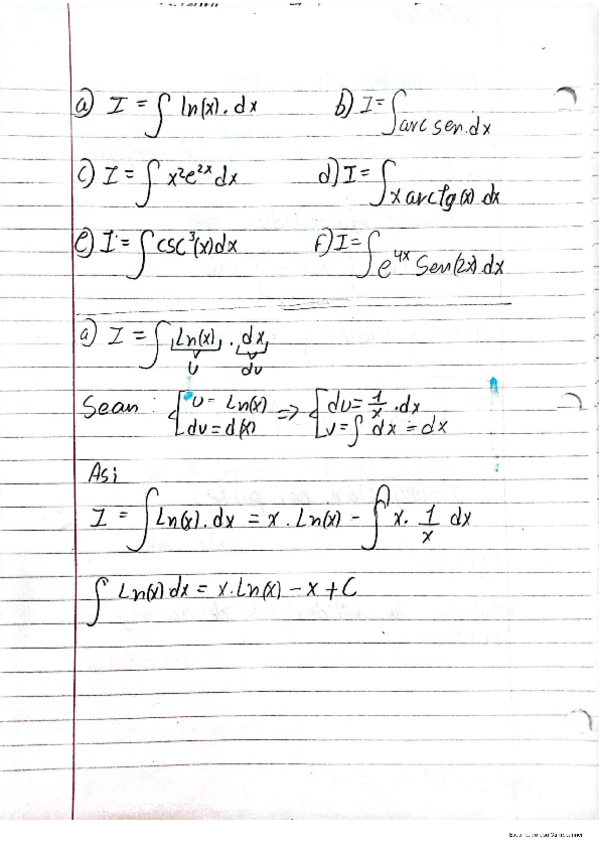 a) I = ∫ Ln(x). dx b) I = ∫ arc sen. dx
c) I = ∫ x²e²ˣ dx d) I = ∫ x arctg (x) dx
e) I = ∫ csc³(x) dx f) I = ∫ e⁴ˣ Sen(2x) dx
a) I = ∫ Ln(x) . dx
u dv
Sean : { u = Ln(x) => { du = 1/x . dx
dv = d(x) v = ∫ dx = dx
Asi
I = ∫ Ln(x). dx = x . Ln(x) - ∫ x. 1/x dx
∫ Ln(x) dx = x. Ln(x) - x + C